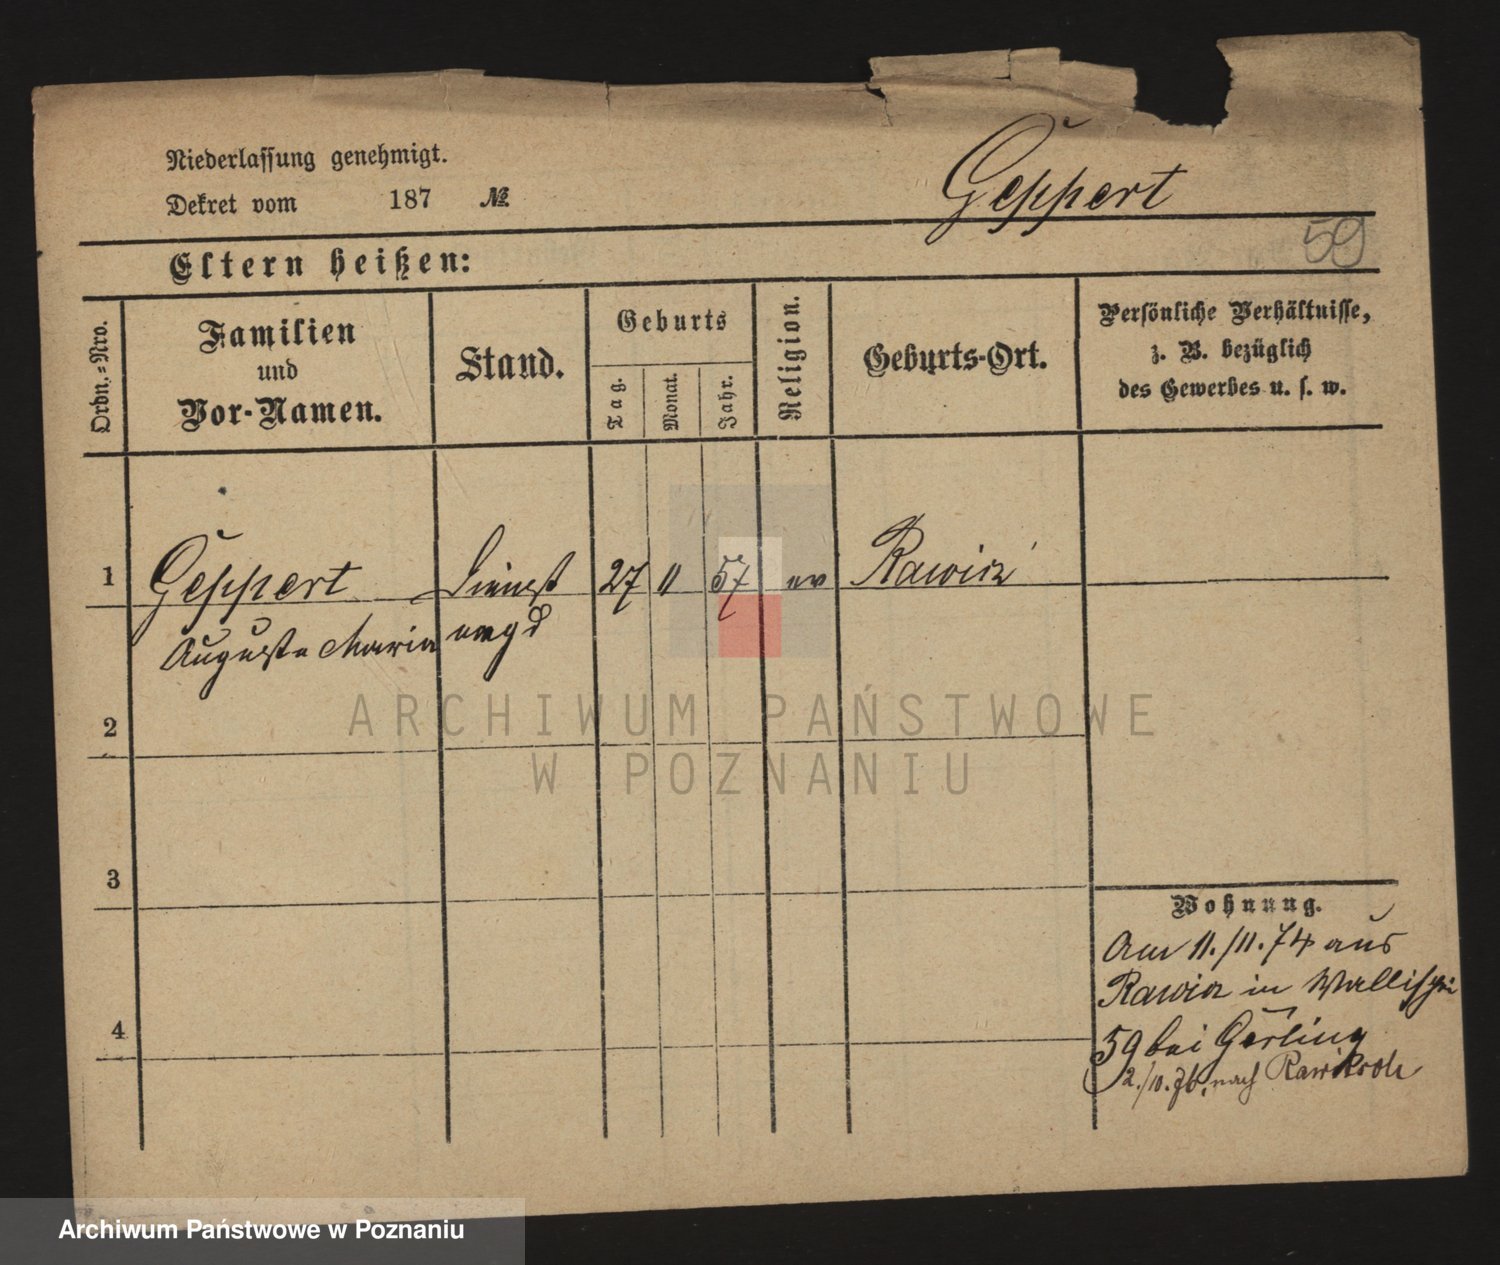 Niederlassung genehmigt.
Dekret vom 187 №
Geppert
59
Eltern heißen:
Ordn.-Nro.
Familien
und
Vor-Namen.
Stand.
Geburts
Tag.
Monat.
Jahr.
Religion.
Geburts-Ort.
Persönliche Verhältnisse,
z. B. bezüglich
des Gewerbes u. s. w.
1
Geppert Dienst 27 11 57 ev Rawicz
Auguste Maria magd
2
ARCHIWUM PAŃSTWOWE
W POZNANIU
3
Wohnung.
Am 11./11.74 aus
Rawicz in Wallischei
4
59 bei Gerling
2./10.76. nach
Archiwum Państwowe w Poznaniu